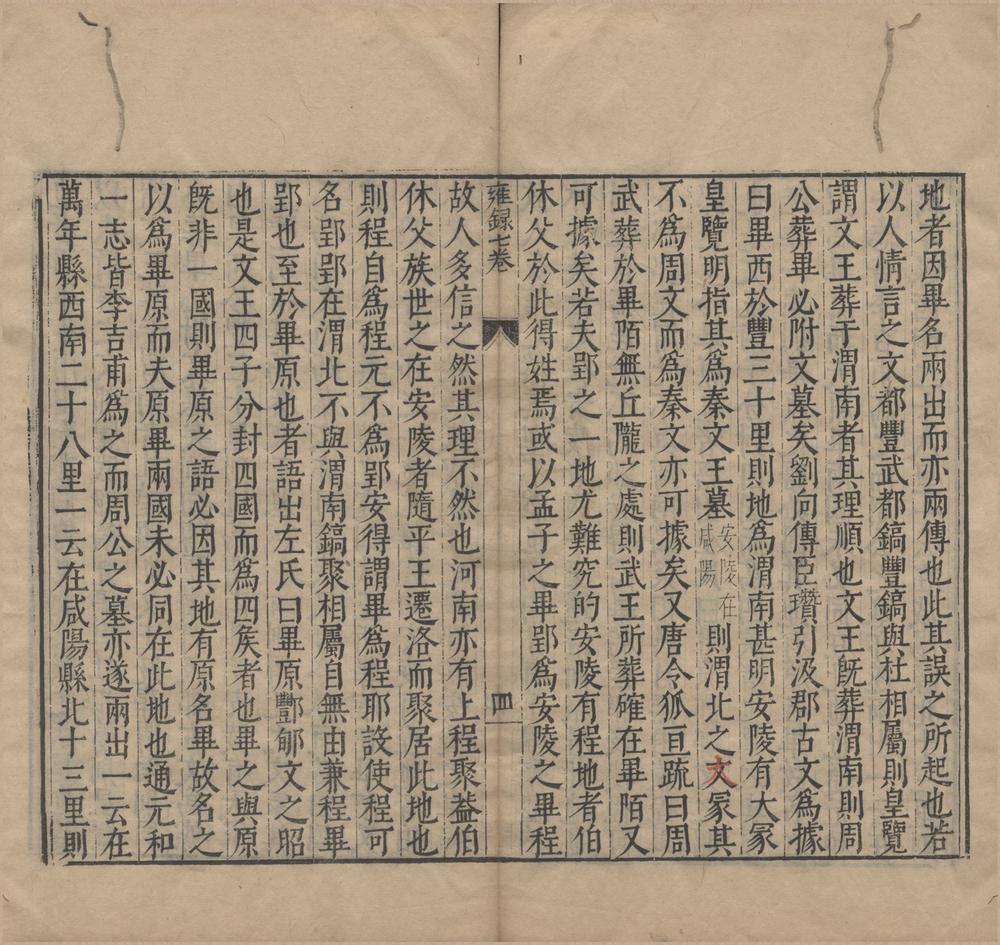 地者因畢名兩出而亦兩傳也此其誤之所起也若
以人情言之文都豐武都鎬豐鎬與杜相屬則皇覽
謂文王葬于渭南者其理順也文王旣葬渭南則周
公葬畢必附文墓矣劉向傳臣瓚引汲郡古文爲據
曰畢西於豐三十里則地爲渭南甚明安陵有大冢
皇覽明指其爲秦文王墓安陵在咸陽則渭北之文冢其
不爲周文而爲秦文亦可據矣又唐令狐亘疏曰周
武葬於畢陌無丘隴之處則武王所葬確在畢陌又
可據矣若夫郢之一地尤難究的安陵有程地者伯
休父於此得姓焉或以孟子之畢郢爲安陵之畢程
雍録七卷
四
故人多信之然其理不然也河南亦有上程聚葢伯
休父族世之在安陵者隨平王遷洛而聚居此地也
則程自爲程元不爲郢安得謂畢爲程耶設使程可
名郢郢在渭北不與渭南鎬聚相屬自無由兼程畢
郢也至於畢原也者語出左氏曰畢原酆郇文之昭
也是文王四子分封四國而爲四矦者也畢之與原
旣非一國則畢原之語必因其地有原名畢故名之
以爲畢原而夫原畢兩國未必同在此地也通元和
一志皆李吉甫爲之而周公之墓亦遂兩出一云在
萬年縣西南二十八里一云在咸陽縣北十三里則